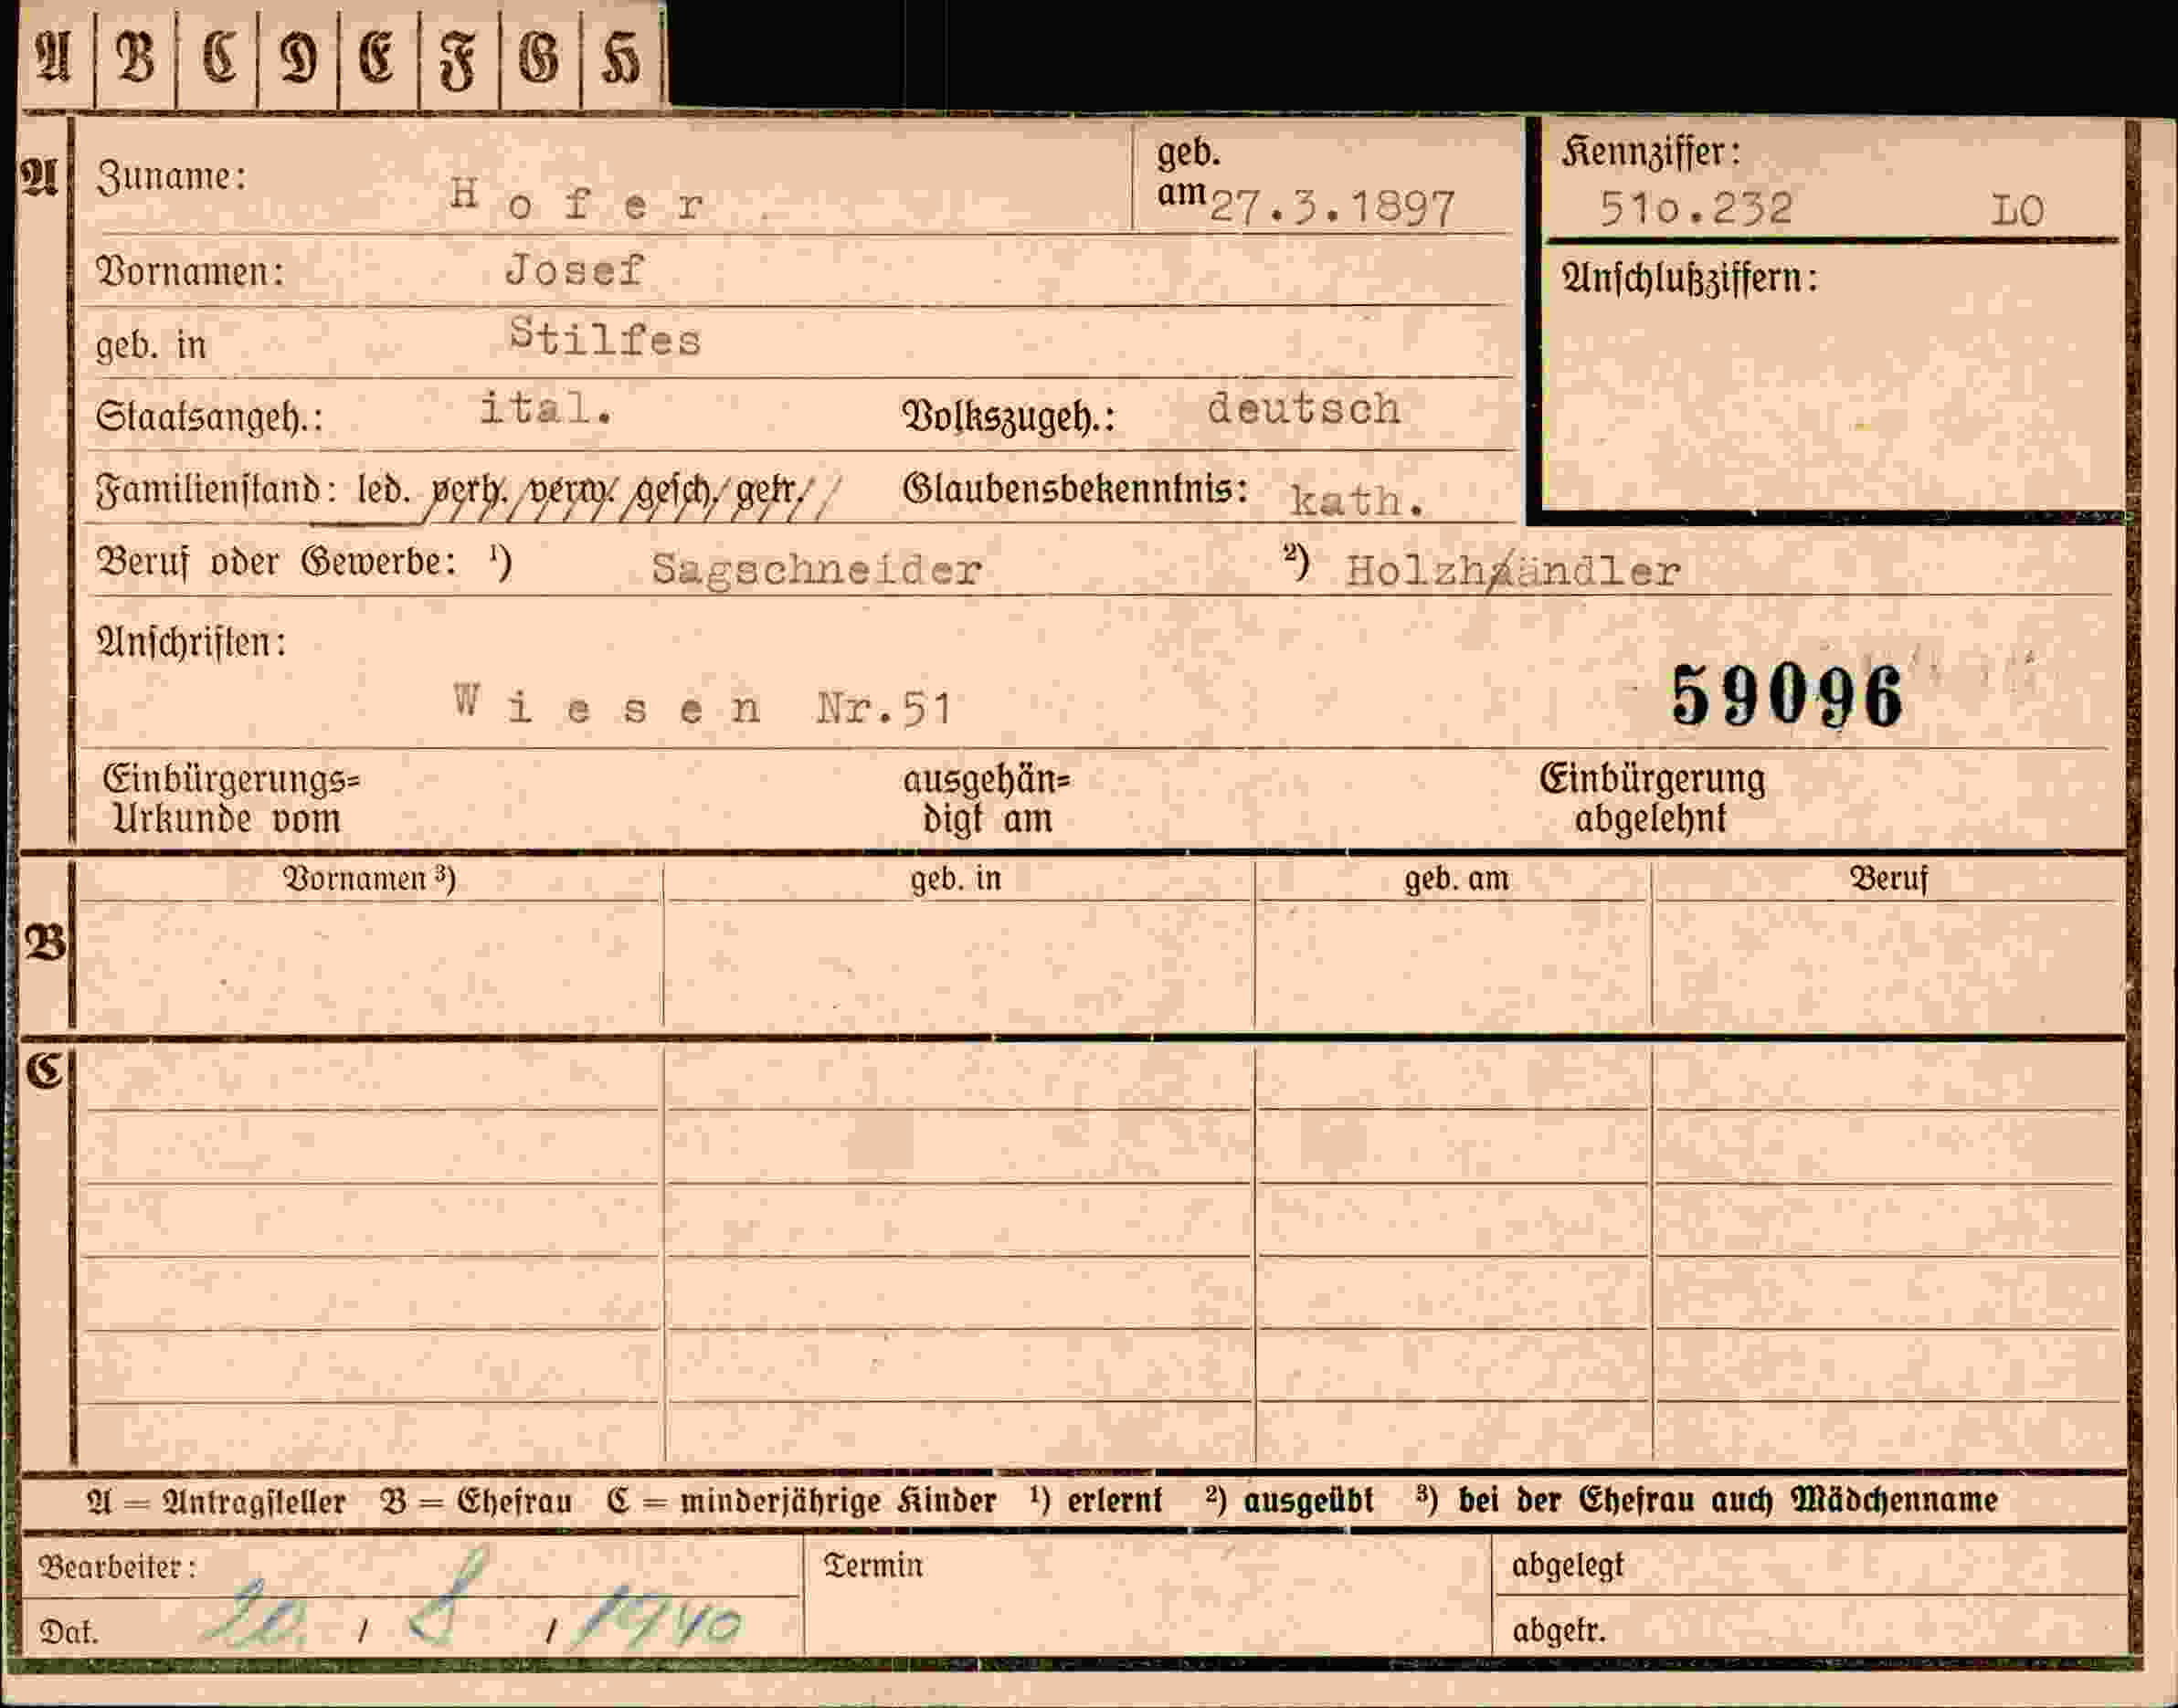 A B C D E F G H
A Zuname: Hofer geb. am 27.3.1897 Kennziffer: 51o.232 LO
Vornamen: Josef Anschlußziffern:
geb. in Stilfes
Staatsangeh.: ital. Volkszugeh.: deutsch
Familienstand: led. verh. verw. gesch. getr. Glaubensbekenntnis: kath.
Beruf oder Gewerbe: ¹) Sagschneider ²) Holzhaändler
Anschriften:
Wiesen Nr.51 59096
Einbürgerungs= ausgehän= Einbürgerung
Urkunde vom digt am abgelehnt
Vornamen ³) geb. in geb. am Beruf
B
C
A = Antragsteller B = Ehefrau C = minderjährige Kinder ¹) erlernt ²) ausgeübt ³) bei der Ehefrau auch Mädchenname
Bearbeiter: Termin abgelegt
Dat. 20. / 8 / 1940 abgetr.